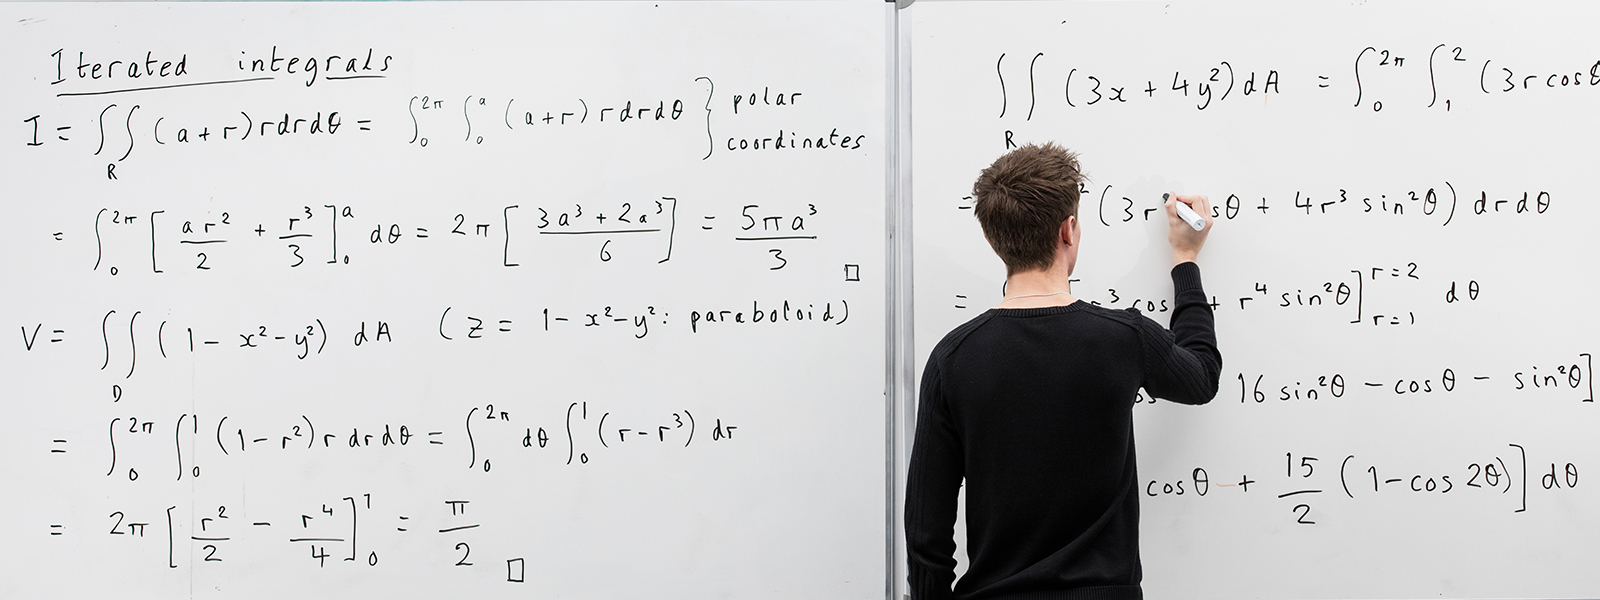 Iterated integrals
I = ∬_R (a + r) r dr dθ = ∫_0^{2π} ∫_0^a (a + r) r dr dθ } polar coordinates
= ∫_0^{2π} [ ar²/2 + r³/3 ]_0^a dθ = 2π [ (3a³ + 2a³)/6 ] = 5πa³/3 □
V = ∬_D (1 - x² - y²) dA (z = 1 - x² - y² : paraboloid)
= ∫_0^{2π} ∫_0^1 (1 - r²) r dr dθ = ∫_0^{2π} dθ ∫_0^1 (r - r³) dr
= 2π [ r²/2 - r⁴/4 ]_0^1 = π/2 □
∬_R (3x + 4y²) dA = ∫_0^{2π} ∫_1^2 (3r cos θ
= ² (3r sθ + 4r³ sin²θ) dr dθ
= r³ cos + r⁴ sin²θ ]_{r=1}^{r=2} dθ
16 sin²θ - cos θ - sin²θ]
cos θ + 15/2 (1 - cos 2θ)] dθ